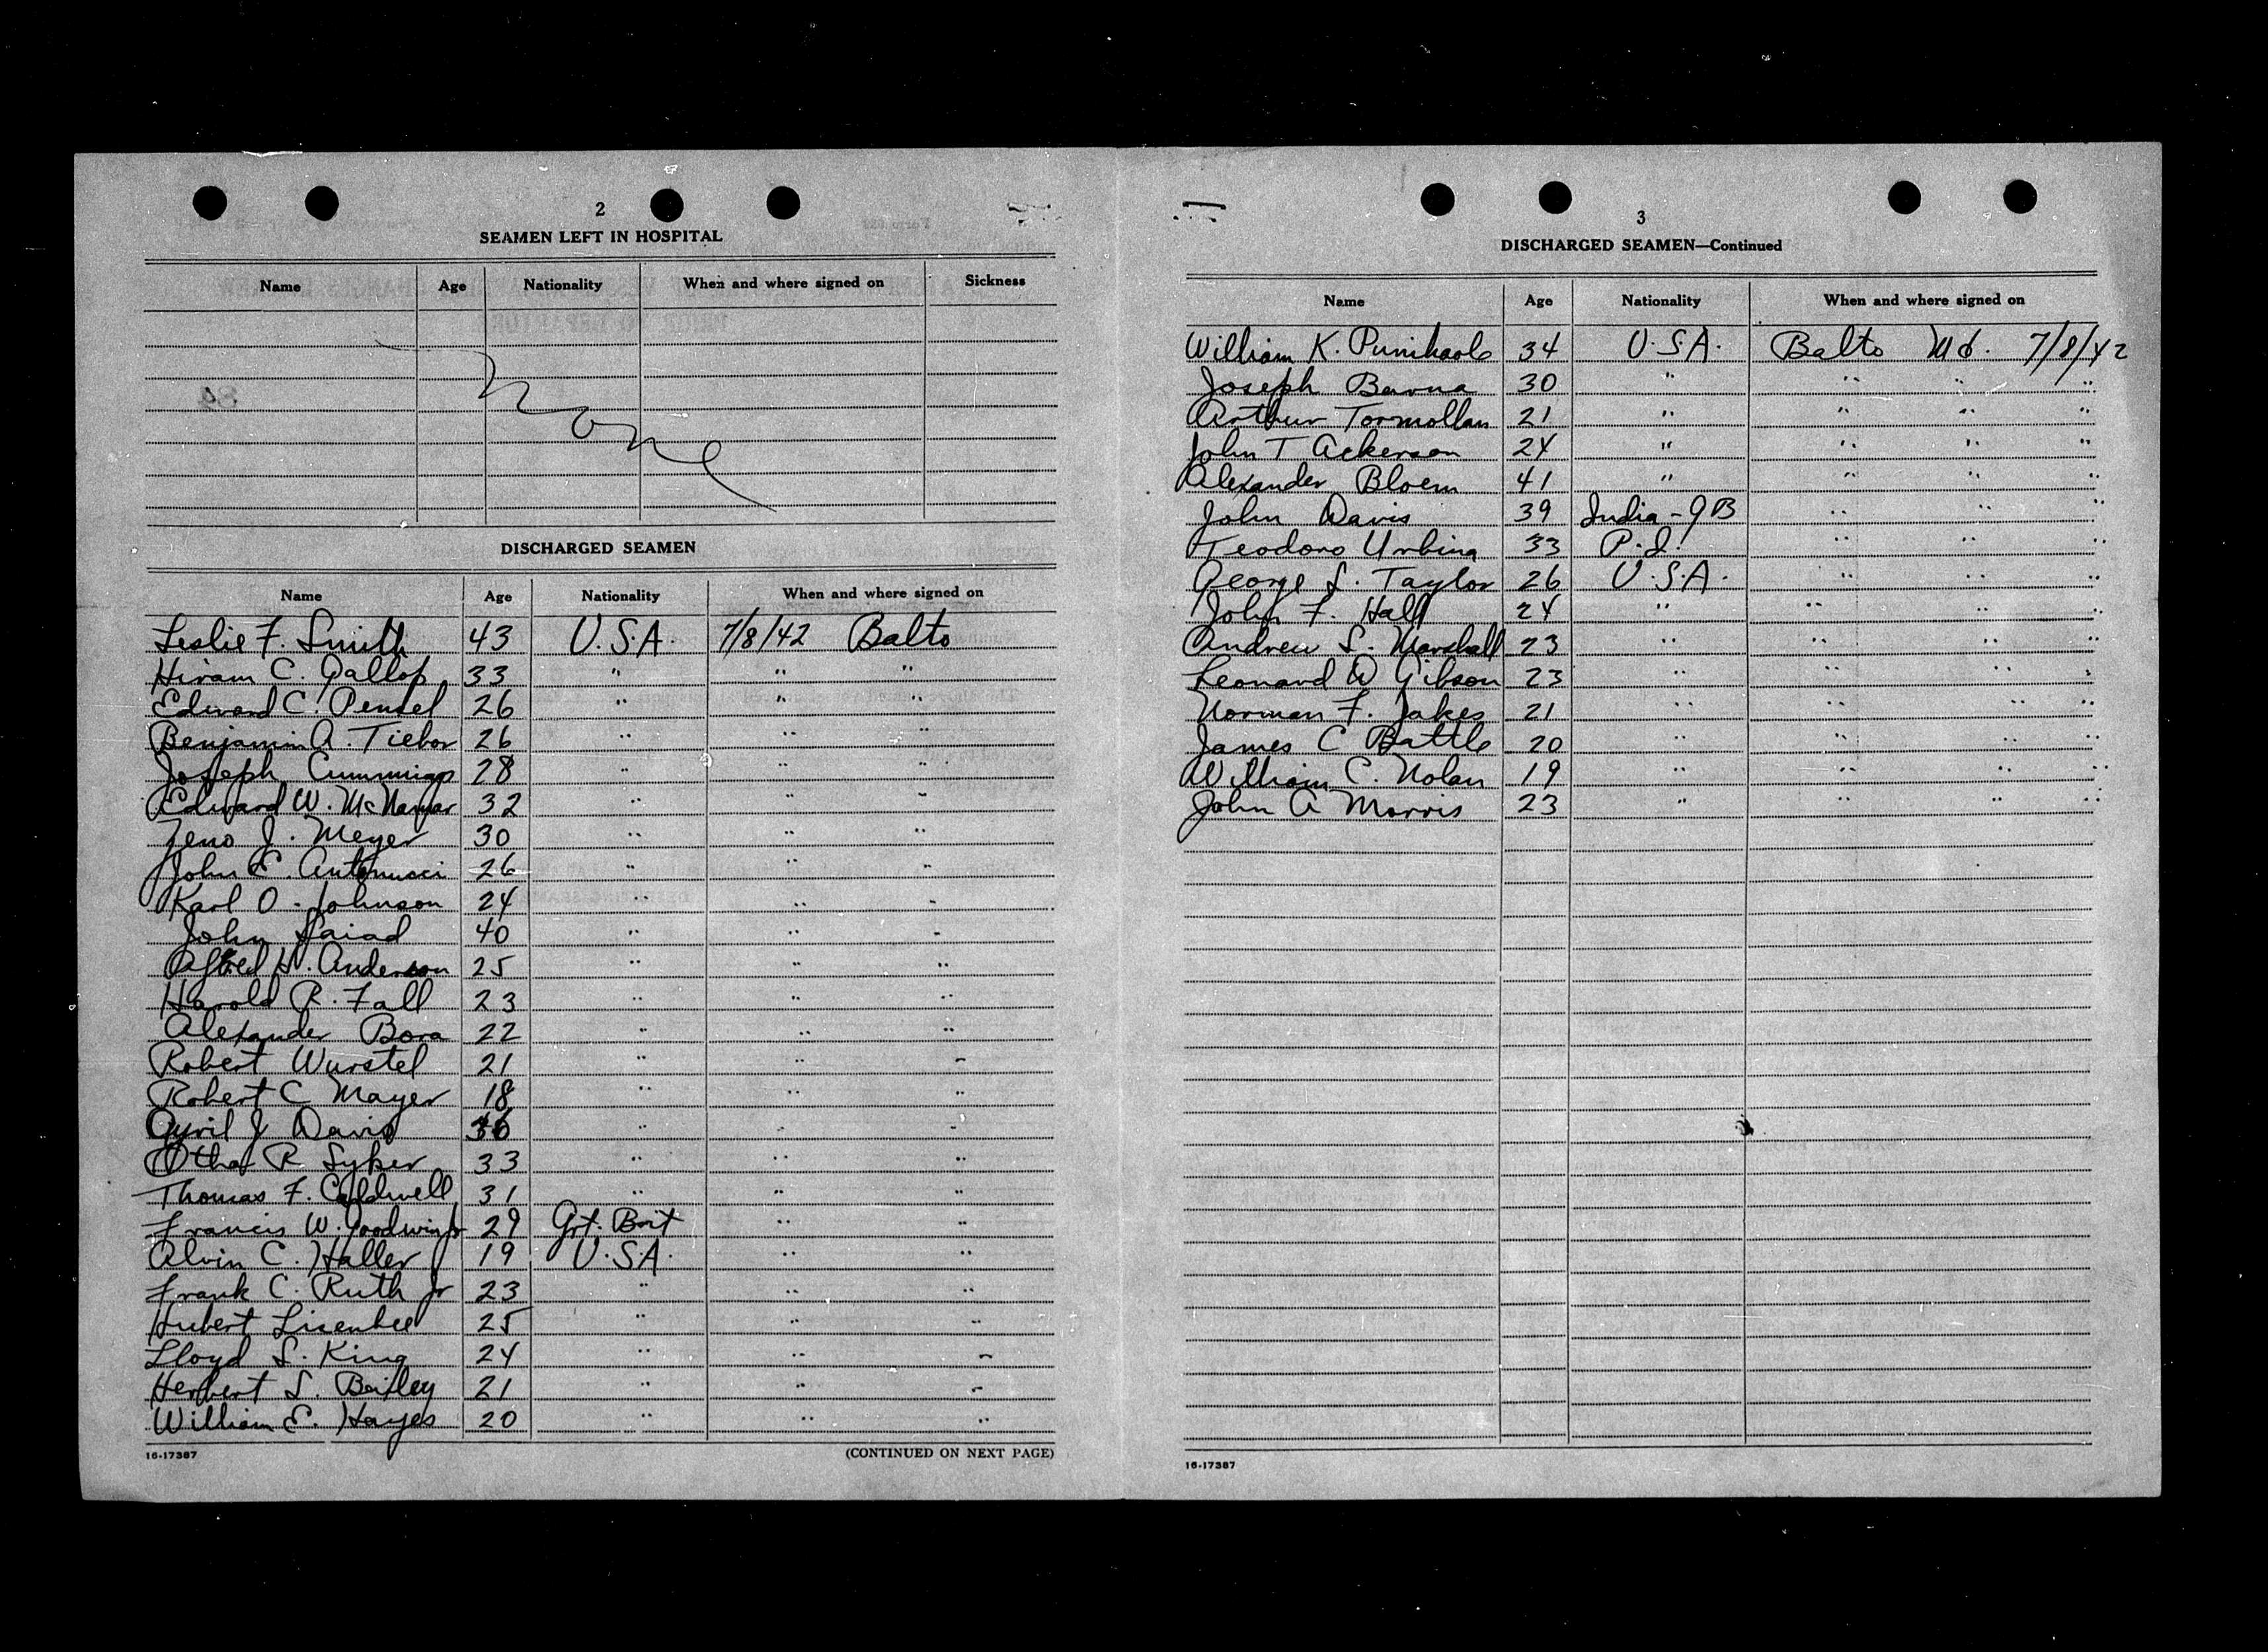 2
SEAMEN LEFT IN HOSPITAL
Name Age Nationality When and where signed on Sickness
None
DISCHARGED SEAMEN
Name Age Nationality When and where signed on
Leslie F. Smith 43 U.S.A. 7/8/42 Balto
Hiram C. Gallop 33 " " "
Edward C. Pensel 26 " " "
Benjamin A. Tiebor 26 " " "
Joseph Cummings 28 " " "
Edward W. McNamar 32 " " "
Zeno J. Meyer 30 " " "
John E. Antonucci 26 " " "
Karl O. Johnson 24 " " "
John Saiad 40 " " "
Alfred H. Anderson 25 " " "
Harold R. Fall 23 " " "
Alexander Bora 22 " " "
Robert Wurstel 21 " " "
Robert C Mayer 18 " " "
Cyril J Davis 36 " " "
Otha R. Syker 33 " " "
Thomas F. Caldwell 31 " " "
Francis W. Goodwin Jr 29 Grt. Brit " "
Alvin C. Haller 19 U.S.A. " "
Frank C. Ruth Jr 23 " " "
Hubert Lisenbee 25 " " "
Lloyd S. King 24 " " "
Herbert S. Bailey 21 " " "
William E. Hayes 20 " " "
16-17387 (CONTINUED ON NEXT PAGE)
3
DISCHARGED SEAMEN—Continued
Name Age Nationality When and where signed on
William K. Punihaole 34 U.S.A. Balto Md. 7/8/42
Joseph Barna 30 " " " "
Arthur Tormollan 21 " " " "
John T Ackerson 24 " " " "
Alexander Bloem 41 " " " "
John Davis 39 India-GB " " "
Teodoro Urbina 33 P.I. " " "
George L. Taylor 26 U.S.A. " " "
John F. Hall 24 " " " "
Andrew S. Marshall 23 " " " "
Leonard W Gibson 23 " " " "
Norman F. Jakes 21 " " " "
James C Battle 20 " " " "
William C. Nolan 19 " " " "
John A Morris 23 " " " "
16-17387